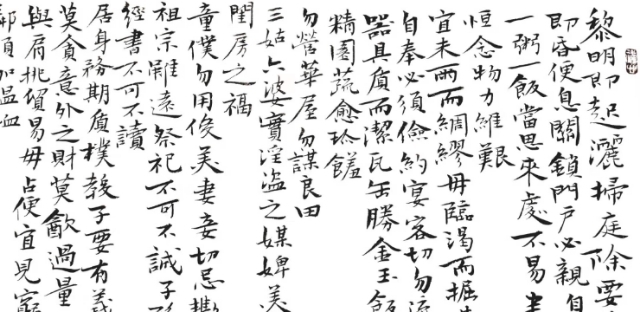 黎明即起灑掃庭除要
即昏便息關鎖門户必親自
一粥一飯當思來處不易半
恒念物力維艱
宜未雨而綢繆毋臨渴而掘
自奉必須儉約宴客切勿流
器具質而潔瓦缶勝金玉飯
精園蔬愈珍饈
勿營華屋勿謀良田
三姑六婆實淫盜之媒婢美
閨房之福
童僕勿用俊美妻妾切忌
祖宗雖遠祭祀不可不誠子
經書不可不讀
居身務期質樸教子要有義
莫貪意外之財莫飲過量
與肩挑貿易毋占便宜見窮
加温